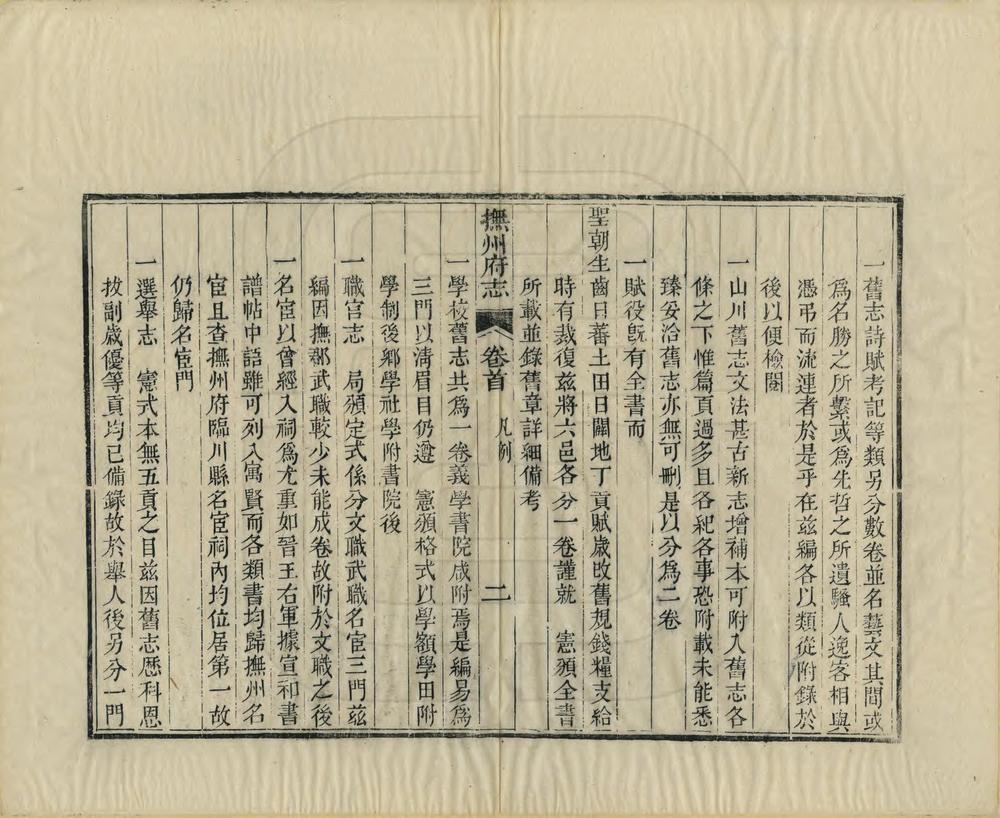 一舊志詩賦考記等類另分數卷並名藝文其間或
爲名勝之所繫或爲先哲之所遺騷人逸客相與
憑弔而流連者於是乎在茲編各以類從附錄於
後以便檢閱
一山川舊志文法甚古新志增補本可附入舊志各
條之下惟篇頁過多且各紀各事恐附載未能悉
臻妥洽舊志亦無可刪是以分爲二卷
一賦役旣有全書而
聖朝生齒日蕃土田日闢地丁貢賦歲改舊規錢糧支給
時有裁復茲將六邑各分一卷謹就　憲頒全書
所載並錄舊章詳細備考
撫州府志　卷首　凡例　二
一學校舊志共爲一卷義學書院咸附焉是編易爲
三門以清眉目仍遵　憲頒格式以學額學田附
學制後鄉學社學附書院後
一職官志　局頒定式係分文職武職名宦三門茲
編因撫郡武職較少未能成卷故附於文職之後
一名宦以曾經入祠爲尤重如晉王右軍據宣和書
譜帖中語雖可列入寓賢而各類書均歸撫州名
宦且查撫州府臨川縣名宦祠內均位居第一故
仍歸名宦門
一選舉志　憲式本無五貢之目茲因舊志歷科恩
拔副歲優等貢均已備錄故於舉人後另分一門